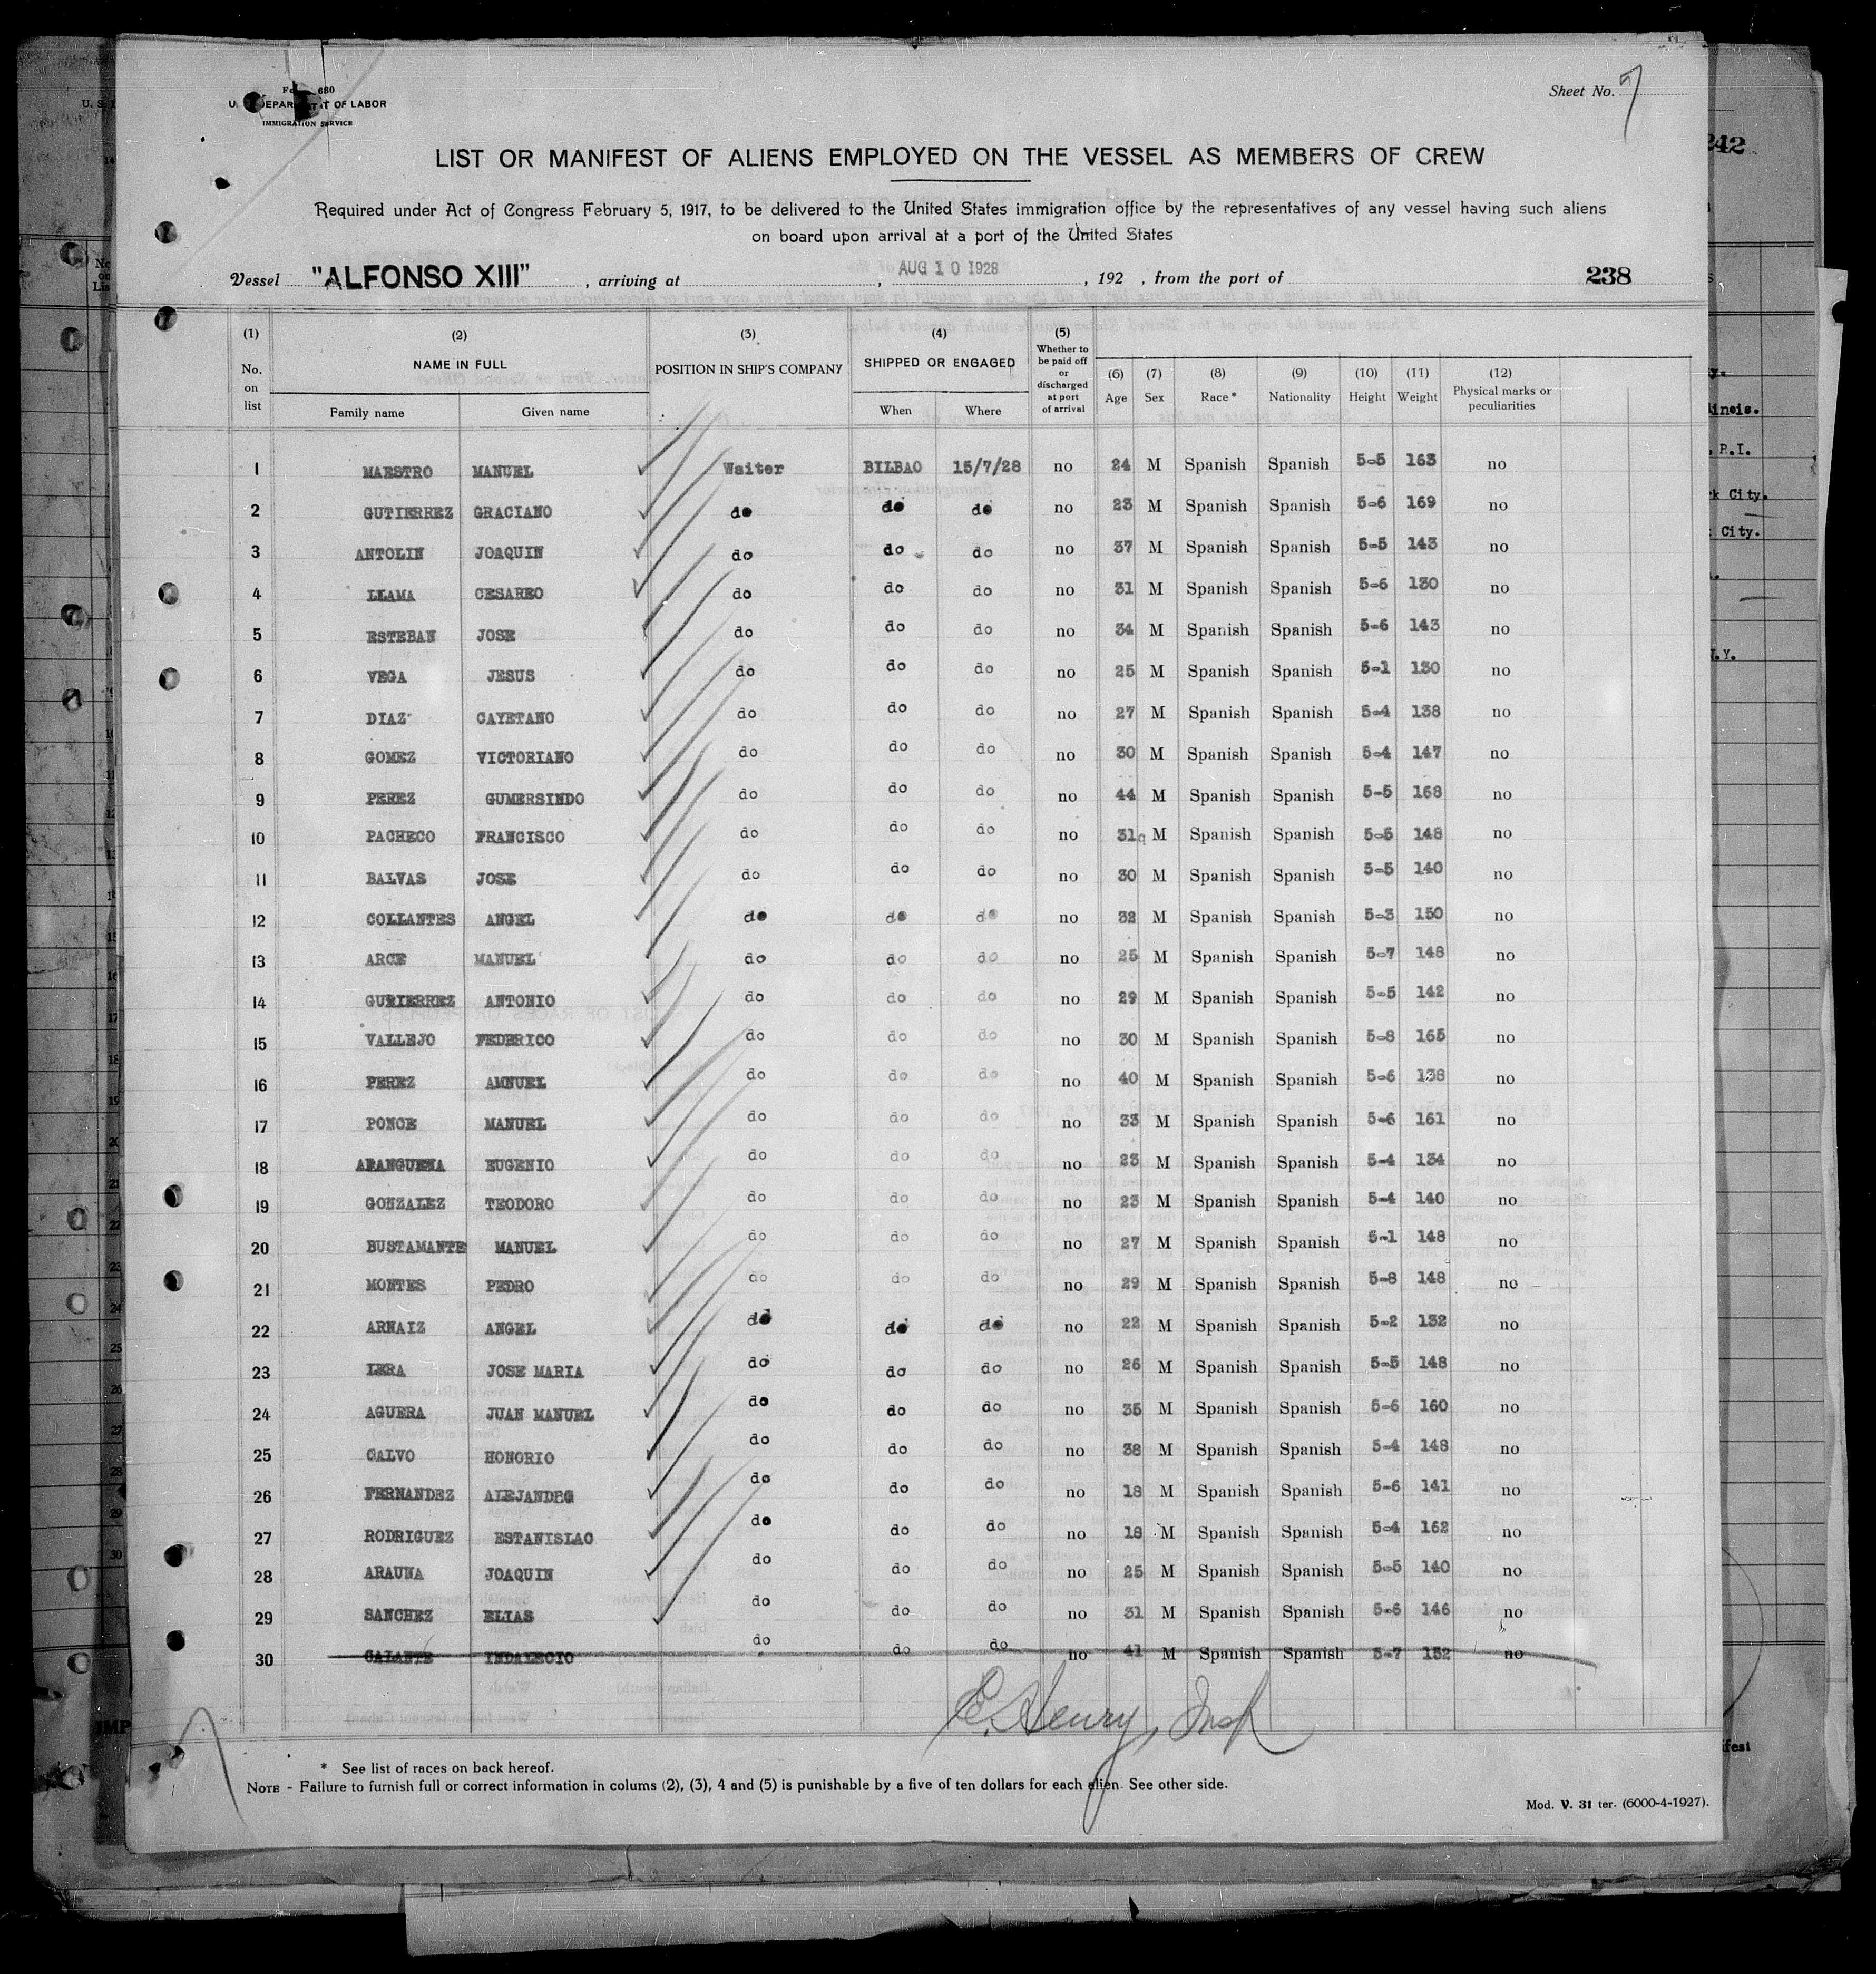 Sheet No. 7
OF LABOR
IMMIGRATION SERVICE
LIST OR MANIFEST OF ALIENS EMPLOYED ON THE VESSEL AS MEMBERS OF CREW
Required under Act of Congress February 5, 1917, to be delivered to the United States immigration office by the representatives of any vessel having such aliens
on board upon arrival at a port of the United States
Vessel "ALFONSO XIII" , arriving at , AUG 10 1928 , 192 , from the port of 238
(1) No. on list (2) NAME IN FULL Family name Given name (3) POSITION IN SHIP'S COMPANY (4) SHIPPED OR ENGAGED When Where (5) Whether to be paid off or discharged at port of arrival (6) Age (7) Sex (8) Race* (9) Nationality (10) Height (11) Weight (12) Physical marks or peculiarities
1 MAESTRO MANUEL Waiter BILBAO 15/7/28 no 24 M Spanish Spanish 5-5 163 no
2 GUTIERREZ GRACIANO do do do no 23 M Spanish Spanish 5-6 169 no
3 ANTOLIN JOAQUIN do do do no 37 M Spanish Spanish 5-5 143 no
4 LLAMA CESAREO do do do no 31 M Spanish Spanish 5-6 130 no
5 ESTEBAN JOSE do do do no 34 M Spanish Spanish 5-6 143 no
6 VEGA JESUS do do do no 25 M Spanish Spanish 5-1 130 no
7 DIAZ CAYETANO do do do no 27 M Spanish Spanish 5-4 138 no
8 GOMEZ VICTORIANO do do do no 30 M Spanish Spanish 5-4 147 no
9 PEREZ GUMERSINDO do do do no 44 M Spanish Spanish 5-5 168 no
10 PACHECO FRANCISCO do do do no 31 M Spanish Spanish 5-5 148 no
11 BALVAS JOSE do do do no 30 M Spanish Spanish 5-5 140 no
12 COLLANTES ANGEL do do do no 32 M Spanish Spanish 5-3 150 no
13 ARCE MANUEL do do do no 25 M Spanish Spanish 5-7 148 no
14 GUTIERREZ ANTONIO do do do no 29 M Spanish Spanish 5-5 142 no
15 VALLEJO FEDERICO do do do no 30 M Spanish Spanish 5-8 165 no
16 PEREZ AMNUEL do do do no 40 M Spanish Spanish 5-6 138 no
17 PONCE MANUEL do do do no 33 M Spanish Spanish 5-6 161 no
18 ARANGUENA EUGENIO do do do no 23 M Spanish Spanish 5-4 134 no
19 GONZALEZ TEODORO do do do no 23 M Spanish Spanish 5-4 140 no
20 BUSTAMANTE MANUEL do do do no 27 M Spanish Spanish 5-1 148 no
21 MONTES PEDRO do do do no 29 M Spanish Spanish 5-8 148 no
22 ARNAIZ ANGEL do do do no 22 M Spanish Spanish 5-2 132 no
23 LERA JOSE MARIA do do do no 26 M Spanish Spanish 5-5 148 no
24 AGUERA JUAN MANUEL do do do no 35 M Spanish Spanish 5-6 160 no
25 CALVO HONORIO do do do no 38 M Spanish Spanish 5-4 148 no
26 FERNANDEZ ALEJANDRO do do do no 18 M Spanish Spanish 5-6 141 no
27 RODRIGUEZ ESTANISLAO do do do no 18 M Spanish Spanish 5-4 162 no
28 ARAUNA JOAQUIN do do do no 25 M Spanish Spanish 5-5 140 no
29 SANCHEZ ELIAS do do do no 31 M Spanish Spanish 5-6 146 no
30 GALANTE INDALECIO do do do no 41 M Spanish Spanish 5-7 152 no
E. Henry, Insp
* See list of races on back hereof.
NOTE - Failure to furnish full or correct information in colums (2), (3), 4 and (5) is punishable by a five of ten dollars for each alien. See other side.
Mod. V. 31 ter. (6000-4-1927).
242
City.